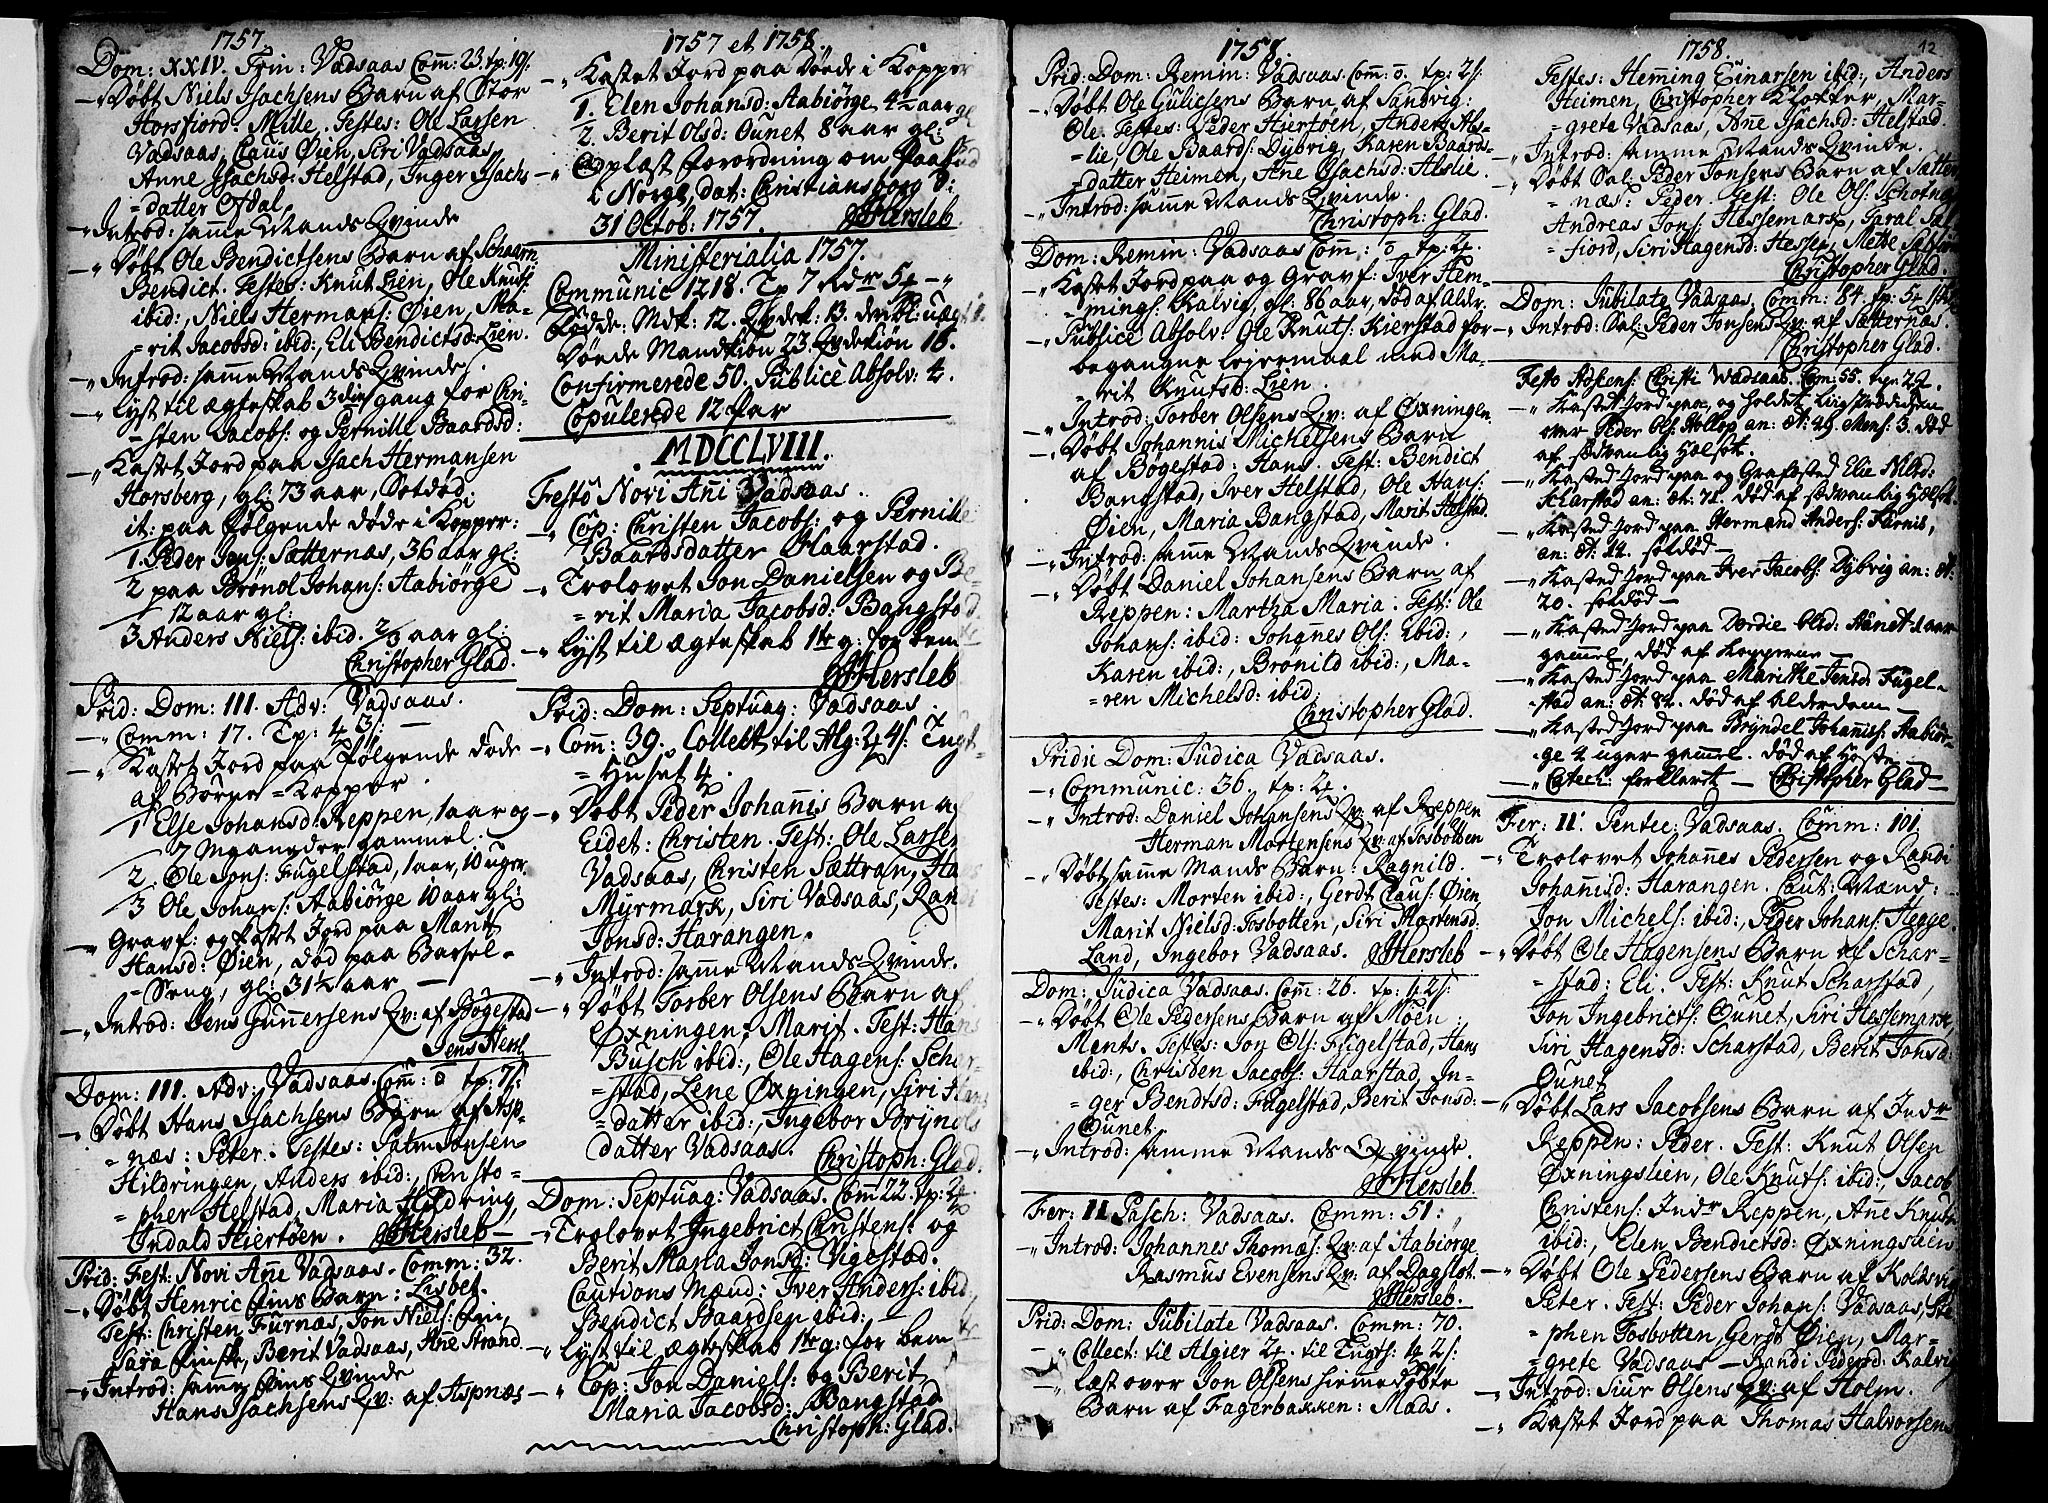 1757.
Dom: XXIV. Trin: Vadsaas Comm: 23. tp: 19s.
–„ Döbt Niels Isachsens Barn af Stor
Horsfiord. Mille. Testes: Ole Larsen
Vadsaas, Claus Øien, Siri Vadsaas,
Anne Isachsd: Helstad, Inger Isachs
=datter Ofdal.
–„ Introd: samme Mands Qvinde
–„ Döbt Ole Bendictsens Barn af Schaarn.
Bendict. Testes: Knut Lien, Ole Knuts:
ibid:, Niels Hermans: Øien, Ma-
=rit Jacobsd: ibid:, Eli Bendictsd: Lien.
–„ Introd: samme Mands Qvinde.
–„ Lyst til ægteskab 3die gang for Chri-
=sten Jacobs: og Pernille Baardsd:
–„ Kastet Jord paa Isach Hermansen
Horsberg, gl: 73 aar, Sotdöd.
it: paa følgende døde i Kopper:
1. Peder Jons: Sætternæs, 36 aar gl:
2 paa Brönol Johans: Aabiörge
12 aar gl:
3 Anders Niels: ibid. 2/3 aar gl:
Christopher Glad.
Prid: Dom: III. Adv: Vadsaas.
–„ Comm: 17. Tp: 4 3s:
–„ Kastet Jord paa følgende døde
af Börne=Kopper.
1 Else Johansd: Reppen, 1 aar og
7 Maaneder gammel.
2. Ole Jons: Fugelstad, 1 aar, 10 uger
3 Ole Johans: Aabiörge 10 aar gl:
–„ Gravf: og kastet Jord paa Marit
Hansd: Øien, död paa Barsel-
=Seng, gl: 31½ aar –
–„ Introd: Jens Gunnersens Qv: af Bögestad
Jens Hersl
Dom: III. Adv: Vadsaas. Com: ō tp: 7s:
–„ Döbt Hans Isachsens Barn af Asp-
=næs: Peter. Testes: Jonsen
Hildringen, Anders ibid:, Christo=
=pher Helstad, Maria Hildring,
Indald Hiertöen. JHersleb –
Prid: Fest: Novi Anñe Vadsaas. Comm: 32.
–„ Döbt Henric Fins Barn: Lisbet.
Test: Christen Furnæs, Jon Niels: Fin,
Sara Finske, Berit Vadsaas, Añe Strand
–„ Introd: samme Fins Qvinde
Hans Isachsens Qv: af Aspnæs
1757 et 1758.
–„ Kastet Jord paa døde i Kopper
1. Elen Johansd: Aabiörge 4½ aar gl
2. Berit Olsd: Ounet 8 aar gl:
–„ Oplæst forordning om
i Norge, dat: Christiansborg d:
31 Octob: 1757. JHersleb.
Ministerialia 1757.
Communic 1218. Tp 7 Rdr 54 –„
Födde: Mdk: 12. Qvdek: 13. deribl: uægt 1.
Døde Mandkiön 23. Qvdekiön 16.
Confirmerede 50. Publice Absolv: 4.
Copulerede 12 Par
MDCCLVIII.
Festo Novi Añi Vadsaas.
–„ Cop: Christen Jacobs: og Pernille
Baardsdatter Haarstad.
–„ Trolovet Jon Danielsen og Be-
=rit Maria Jacobsd: Bangstad
–„ Lyst til ægteskab 1ste g: for bemte
JHersleb
Prid: Dom: Septuag: Vadsaas
–„ Com: 39. Collect til Alg: 2 4s: Tugt-
=Huset 4.
–„ Döbt Peder Johañis Barn af
Eidet: Christen. Test: Ole Larsen
Vadsaas, Christen Sættran, Hans
Myrmark, Siri Vadsaas, Randi
Jonsd: Harangen.
–„ Introd: samme Mands Qvinde.
–„ Döbt Torber Olsens Barn af
Øxningen: Marit. Test: Hans
Busch ibid:, Ole Hagens: Schar-
=stad, Lene Øxningen, Siri
=datter ibid:, Ingebor Brynols
datter Vadsaas. Christoph: Glad.
Dom: Septuag: Vadsaas. Com 22. tp: 2
–„ Trolovet Ingebrict Christens: og
Berit Maria Jonsd: Vigestad.
Cautions Mænd: Iver Anders: ibid,
Bendict Baardsen ibid: –
–„ Lyst til ægteskab 1ste g: for bemte
–„ Cop: Jon Daniels: og Berit
Maria Jacobsd: Bangstad
Christoph: Glad.
1758.
Prid: Dom: Remin: Vadsaas. Comm: ō. tp: 2s:
–„ Döbt Ole Gulicsens Barn af Sandvig:
Ole. Testes: Peder Hiertöen, Anders Als-
=lie, Ole Baards: Dybvig, Karen Baards-
=datter Heimen, Ane Isachsd: Alslie.
–„ Introd: samme Mands Qvinde.
Christoph: Glad.
Dom: Remin: Vadsaas Comm: ō tp: 2.
–„ Kastet Jord paa og Gravf: Iver Hem-
=mings: Kalvig, gl: 86 aar, död af Alder.
–„ Publice Absolv: Ole Knuts: Kierstad for
begangne Lejermaal med Ma-
=rit Knutsd: Lien.
–„ Introd: Torber Olsens Qv: af Øxningen.
–„ Döbt Johannis Michelsens Barn
af Bögestad: Hans. Test: Bendict
Bangstad, Iver Helstad, Ole Hans:
Øien, Maria Bangstad, Marit Helstad.
–„ Introd: samme Mands Qvinde.
–„ Döbt Daniel Johansens Barn af
Reppen: Martha Maria. Test: Ole
Johans: ibid: Johañes Ols: ibid:,
Karen ibid:, Brönild ibid:, Ma-
=ren Michelsd: ibid,
Christopher Glad.
Pridie Dom: Judica Vadsaas.
–„ Communic: 36. tp: 2.
–„ Introd: Daniel Johansens Qv: af Reppen
Herman Mortensens Qv: af Tosbotten
–„ Döbt samme Mands Barn: Ragnild.
Testes: Morten ibid:, Gerdt Claus: Øien,
Marit Nielsd: Tosbotten, Siri Mortensd:
Land, Ingebor Vadsaas. JHersleb
Dom: Judica Vadsaas. Com: 26. tp: 1. 2s:
–„ Döbt Ole Pedersens Barn af Moen:
Ments. Testes: Jon Ols: Fugelstad, Hans
ibid:, Christen Jacobs: Haarstad, In-
=ger Bendtsd: Fugelstad, Berit Jonsd:
Ounet.
–„ Introd: samme Mands Qvinde.
JHersleb.
Fer: II Pasch: Vadsaas. Comm: 51:
–„ Introd: Johannes Thomæs: Qv: af Aabiörge
Rasmus Evensens Qv: af Dagslot.
JHersleb.
Prid: Dom: Jubilate Vadsaas. Comm: 70.
–„ Collect: til Algier 2. til Tugts: 4 2s:
–„ Læst over Jon Olsens hiemmedöbte
Barn af Fagerbakken: Mads.
1758.
12
Testes: Hemming Einarsen ibid:, Anders
Heimen, Christopher Klotter, Mar-
=grete Vadsaas, Añe Isachsd: Helstad.
–„ Introd: samme Mands Qvinde.
–„ Döbt Sal: Peder Jonsens Barn af Sætter
=næs: Peder. Test: Ole Ols: Schotnæs
Andreas Jons: Hessemark, Taral Sæl
=fiord, Siri Hagensd: Hessen, Mette Sælfiord
Christopher Glad.
Dom: Jubilate Vadsaas. Comm: 84. tp: 54 1s
–„ Introd: Sal: Peder Jonsens Qv: af Sætternæs.
Christopher Glad.
Festo Adscens: Christi Wadsaas. Com: 55. tp: 22.
–„ Kasted Jord paa, og holdet Liigprædiken
over Peder Ols: Hollop an: æt: 29. Mens: 3. död
af sædvanlig Helsot.
–„ Kasted Jord paa og Grafæsted Elie Nilsd:
Scharstad an: æt: 72. död af sædvanlig Helsot.
–„ Kasted Jord paa Hermand Anders: Furnis,
an: æt: 22. sotdöd –
–„ Kasted Jord paa Iver Jacobs: Dybvig an: æt:
20. sotdöd –
–„ Kasted Jord paa Dordie Olsd: Aunet 1 aar
gammel, död af Kopperne –
–„ Kasted Jord paa Maritte Jensd: Fugel-
stad an: æt: 82. död af alderdom –
–„ Kasted Jord paa Bryndel Johanis: Aabiør-
ge 4 uger gammel. død af Hoste –
–„ Catech: forklaret – Christopher Glad –
Fer: II. Pentec: Vadsaas. Comm: 101
–„ Trolovet Johañes Pedersen og Randi
Johañisd: Harangen. Caut: Mænd:
Jon Michels: ibid:, Peder Johans: Hegge.
–„ Döbt Ole Hagensens Barn af Schar-
=stad: Eli. Test: Knut Scharstad,
Jon Ingebricts: Ounet, Siri Hessemark
Siri Hagensd: Scharstad, Berit Jonsd:
Ounet
–„ Döbt Lars Jacobsens Barn af Indr
Reppen: Peder. Test: Knut Olsen
Øxningslien, Ole Knuts: ibid:, Jacob
Christens: Indr Reppen, Añe Knutsd
ibid:, Elen Bendictsd: Øxningslien
–„ Döbt Ole Pedersens Barn af Koldsvig
Peter. Test: Peder Johans: Vadsaas, Ste
=phen Tosbotten, Gerdt Øien, Mar-
=grete Vadsaas – Randi Pedersd: Kalvig
–„ Introd: Siur Olsens Qv: af Holm.
–„ Kastet Jord paa Thomas Halvorsens